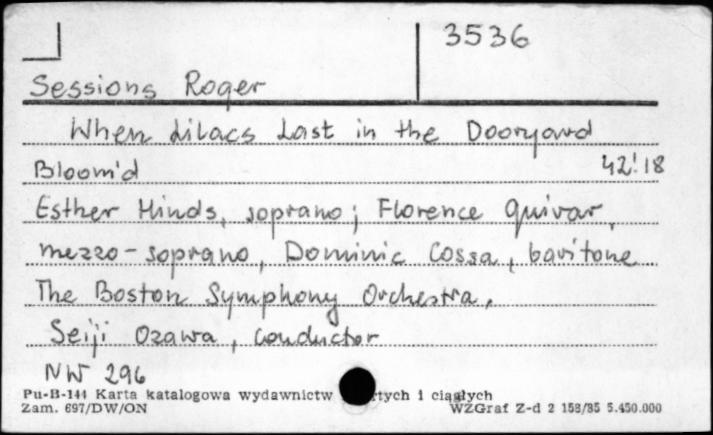 3536
Sessions Roger
When Lilacs Last in the Dooryard
Bloom'd 42'18
Esther Hinds, soprano; Florence Quivar,
mezzo-soprano, Dominic Cossa, baritone
The Boston Symphony Orchestra,
Seiji Ozawa, conductor
NW 296
Pu-B-144 Karta katalogowa wydawnictw rtych i ciągłych
Zam. 697/DW/ON WZGraf Z-d 2 158/85 5.450.000